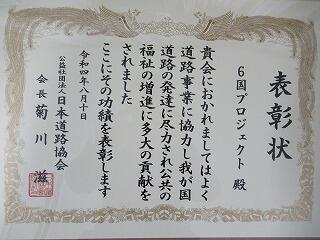 表彰状
6国プロジェクト 殿
貴会におかれましてはよく
道路事業に協力し我が国
道路の発達に尽力され公共の
福祉の増進に多大の貢献を
されました
ここにその功績を表彰します
令和四年八月十日
公益社団法人 日本道路協会
会長 菊川 滋